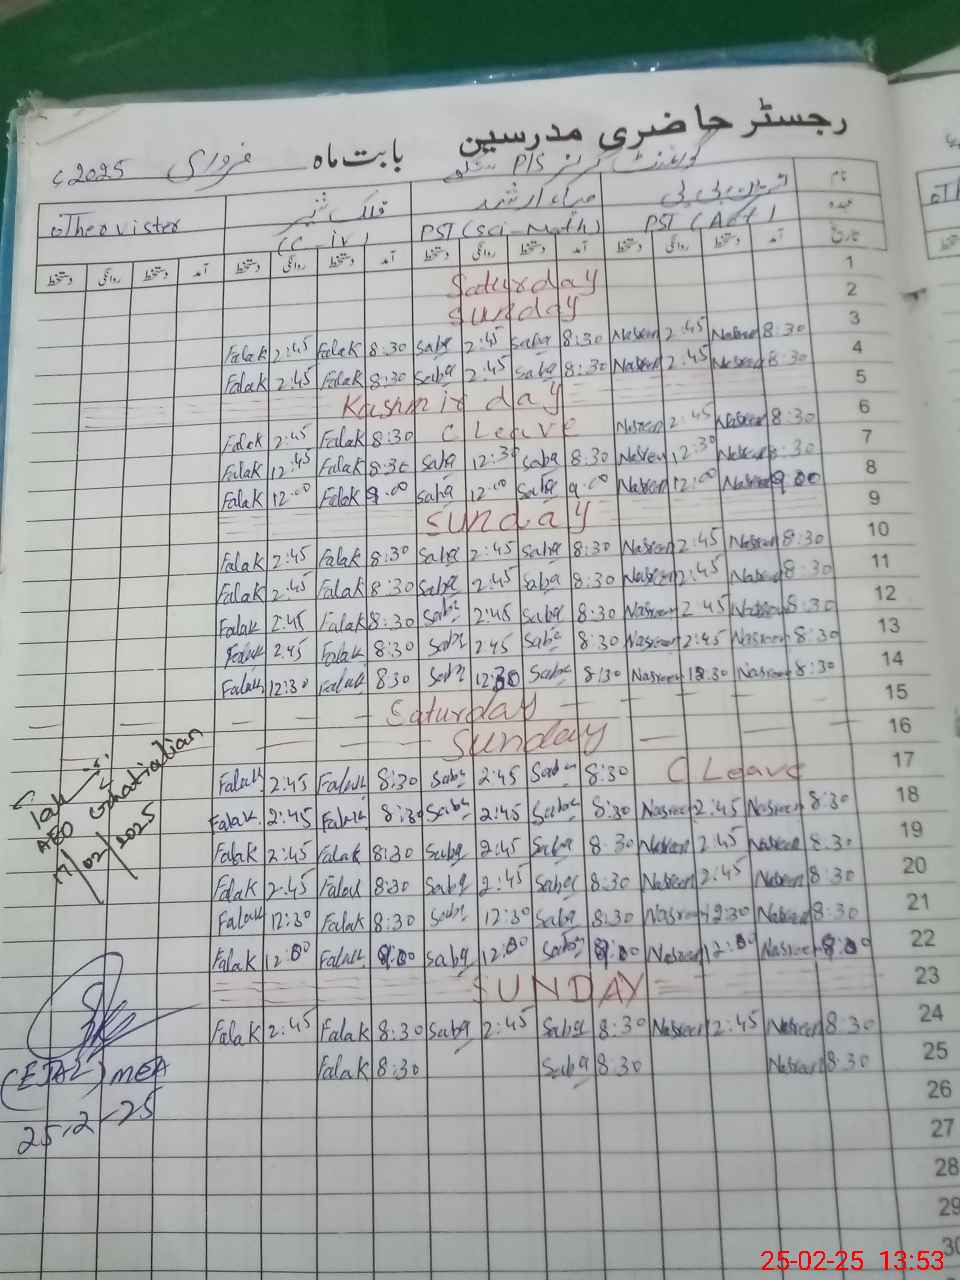 رجسٹر حاضری مدرسین
بابت ماہ فروری 2025ء
گورنمنٹ گرلز P/S
نام
عہدہ
تاریخ
PST (Art)
PST (Sci-Math)
فلک شیر
(C-iv)
Other visiter
آمد دستخط روانگی دستخط آمد دستخط روانگی دستخط آمد دستخط روانگی دستخط آمد دستخط روانگی دستخط
1 Saturday
2 Sunday
Falak 2:45 Falak 8:30 Saba 2:45 Saba 8:30 Nasreen 2:45 Nasreen 8:30 3
Falak 2:45 Falak 8:30 Saba 2:45 Saba 8:30 Nasreen 2:45 Nasreen 8:30 4
Kashmir day 5
Falak 2:45 Falak 8:30 C Leave Nasreen 2:45 Nasreen 8:30 6
Falak 12:45 Falak 8:30 Saba 12:30 Saba 8:30 Nasreen 12:30 Nasreen 8:30 7
Falak 12:00 Falak 9:00 Saba 12:00 Saba 9:00 Nasreen 12:00 Nasreen 9:00 8
Sunday 9
Falak 2:45 Falak 8:30 Saba 2:45 Saba 8:30 Nasreen 2:45 Nasreen 8:30 10
Falak 2:45 Falak 8:30 Saba 2:45 Saba 8:30 Nasreen 2:45 Nasreen 8:30 11
Falak 2:45 Falak 8:30 Saba 2:45 Saba 8:30 Nasreen 2:45 Nasreen 8:30 12
Falak 2:45 Falak 8:30 Saba 2:45 Saba 8:30 Nasreen 2:45 Nasreen 8:30 13
Falak 12:30 Falak 8:30 Saba 12:30 Saba 8:30 Nasreen 12:30 Nasreen 8:30 14
Saturday 15
Sunday 16
Falak 2:45 Falak 8:30 Saba 2:45 Saba 8:30 C Leave 17
Falak 2:45 Falak 8:30 Saba 2:45 Saba 8:30 Nasreen 2:45 Nasreen 8:30 18
Falak 2:45 Falak 8:30 Saba 2:45 Saba 8:30 Nasreen 2:45 Nasreen 8:30 19
Falak 2:45 Falak 8:30 Saba 2:45 Saba 8:30 Nasreen 2:45 Nasreen 8:30 20
Falak 12:30 Falak 8:30 Saba 12:30 Saba 8:30 Nasreen 12:30 Nasreen 8:30 21
Falak 12:00 Falak 9:00 Saba 12:00 Saba 9:00 Nasreen 12:00 Nasreen 9:00 22
SUNDAY 23
Falak 2:45 Falak 8:30 Saba 2:45 Saba 8:30 Nasreen 2:45 Nasreen 8:30 24
Falak 8:30 Saba 8:30 Nasreen 8:30 25
26
27
28
29
30
AEO
17/02/2025
MEA
25-2-25
25-02-25 13:53